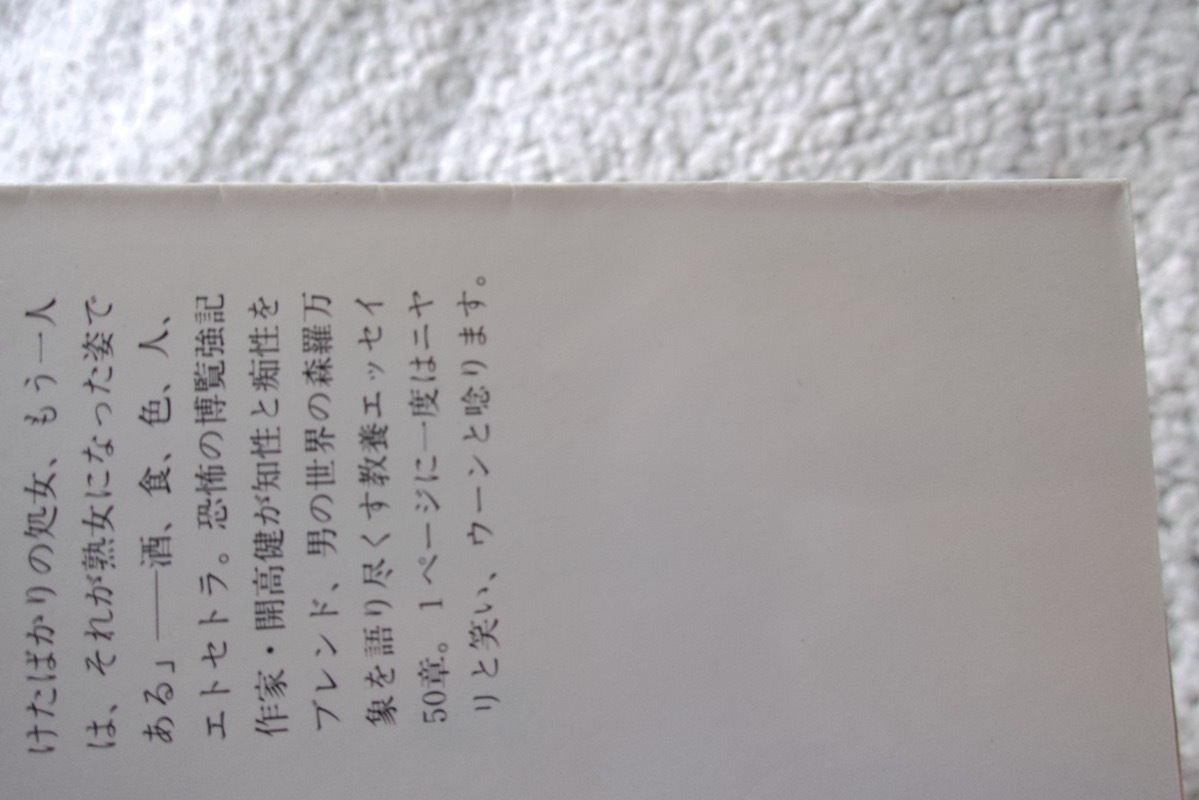 けたばかりの処女、もう一人
は、それが熟女になった姿で
ある」――酒、食、色、人、
エトセトラ。恐怖の博覧強記
作家・開高健が知性と痴性を
ブレンド、男の世界の森羅万
象を語り尽くす教養エッセイ
50章。1ページに一度はニヤ
リと笑い、ウーンと唸ります。